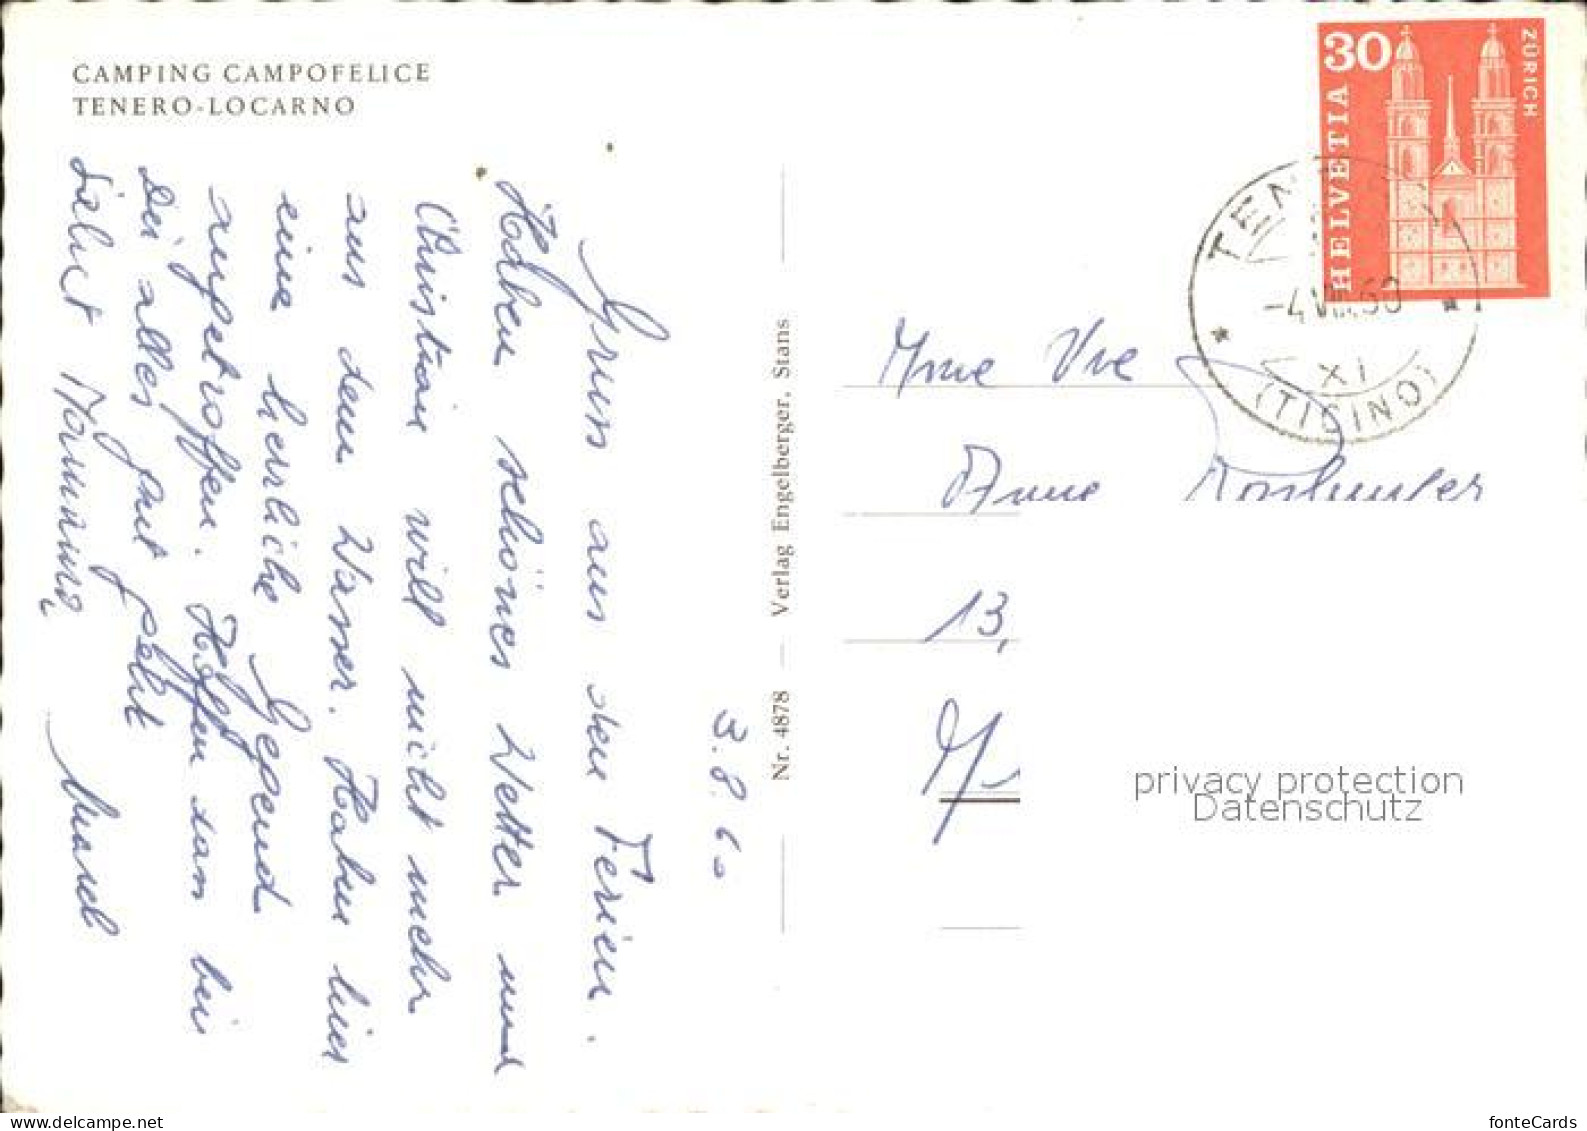 CAMPING CAMPOFELICE
TENERO-LOCARNO
3.8.60
Gruss aus den Ferien.
Haben schönes Wetter und
Christian will nicht mehr
aus dem Wasser. Haben hier
eine herrliche Gegend
angetroffen. Hoffen dass bei
Dir alles gut geht
Salut
Nr. 4878 — Verlag Engelberger, Stans
30
HELVETIA
ZÜRICH
-4.VIII.60
XI
(TICINO)
Mme Vve
Anne
13,
privacy protection
Datenschutz
fonteCards